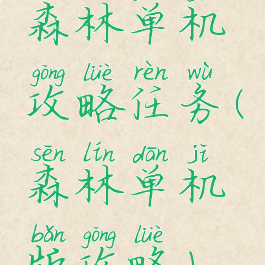 森林单机
gōng lüè rèn wù
攻略任务(
sēn lín dān jī
森林单机
bǎn gōng lüè
版攻略)